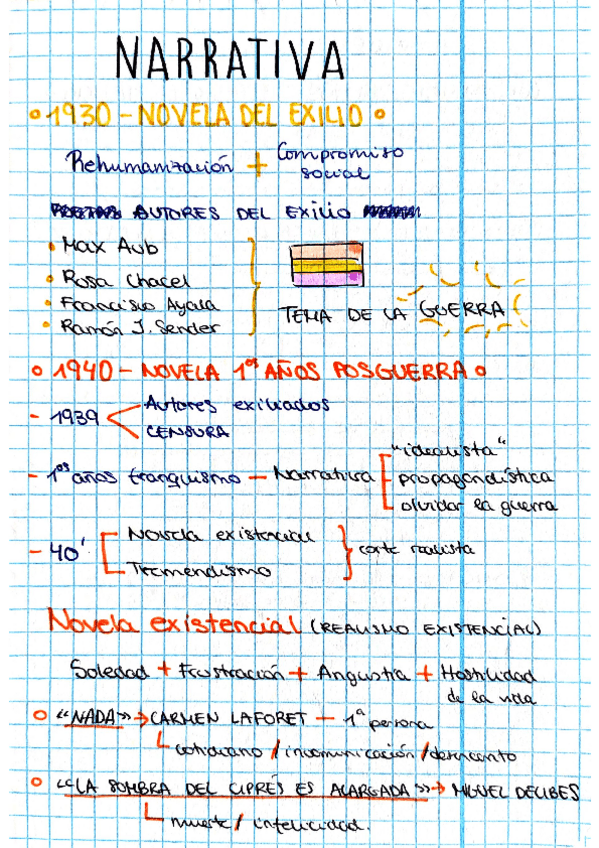 NARRATIVA
• 1930 - NOVELA DEL EXILIO •
Rehumanización + Compromiso social
AUTORES DEL EXILIO
• Max Aub
• Rosa Chacel
• Francisco Ayala
• Ramón J. Sender
TEMA DE LA GUERRA
• 1940 - NOVELA 1os AÑOS POSGUERRA •
- 1939 Autores exiliados
CENSURA
- 1os años franquismo - Narrativa "idealista"
propagandística
olvidar la guerra
- 40' Novela existencial
Tremendismo
corte realista
Novela existencial (REALISMO EXISTENCIAL)
Soledad + Frustración + Angustia + Hostilidad de la vida
• «NADA» → CARMEN LAFORET - 1ª persona
cotidiano / incomunicación / desencanto
• «LA SOMBRA DEL CIPRÉS ES ALARGADA» → MIGUEL DELIBES
muerte / infelicidad.